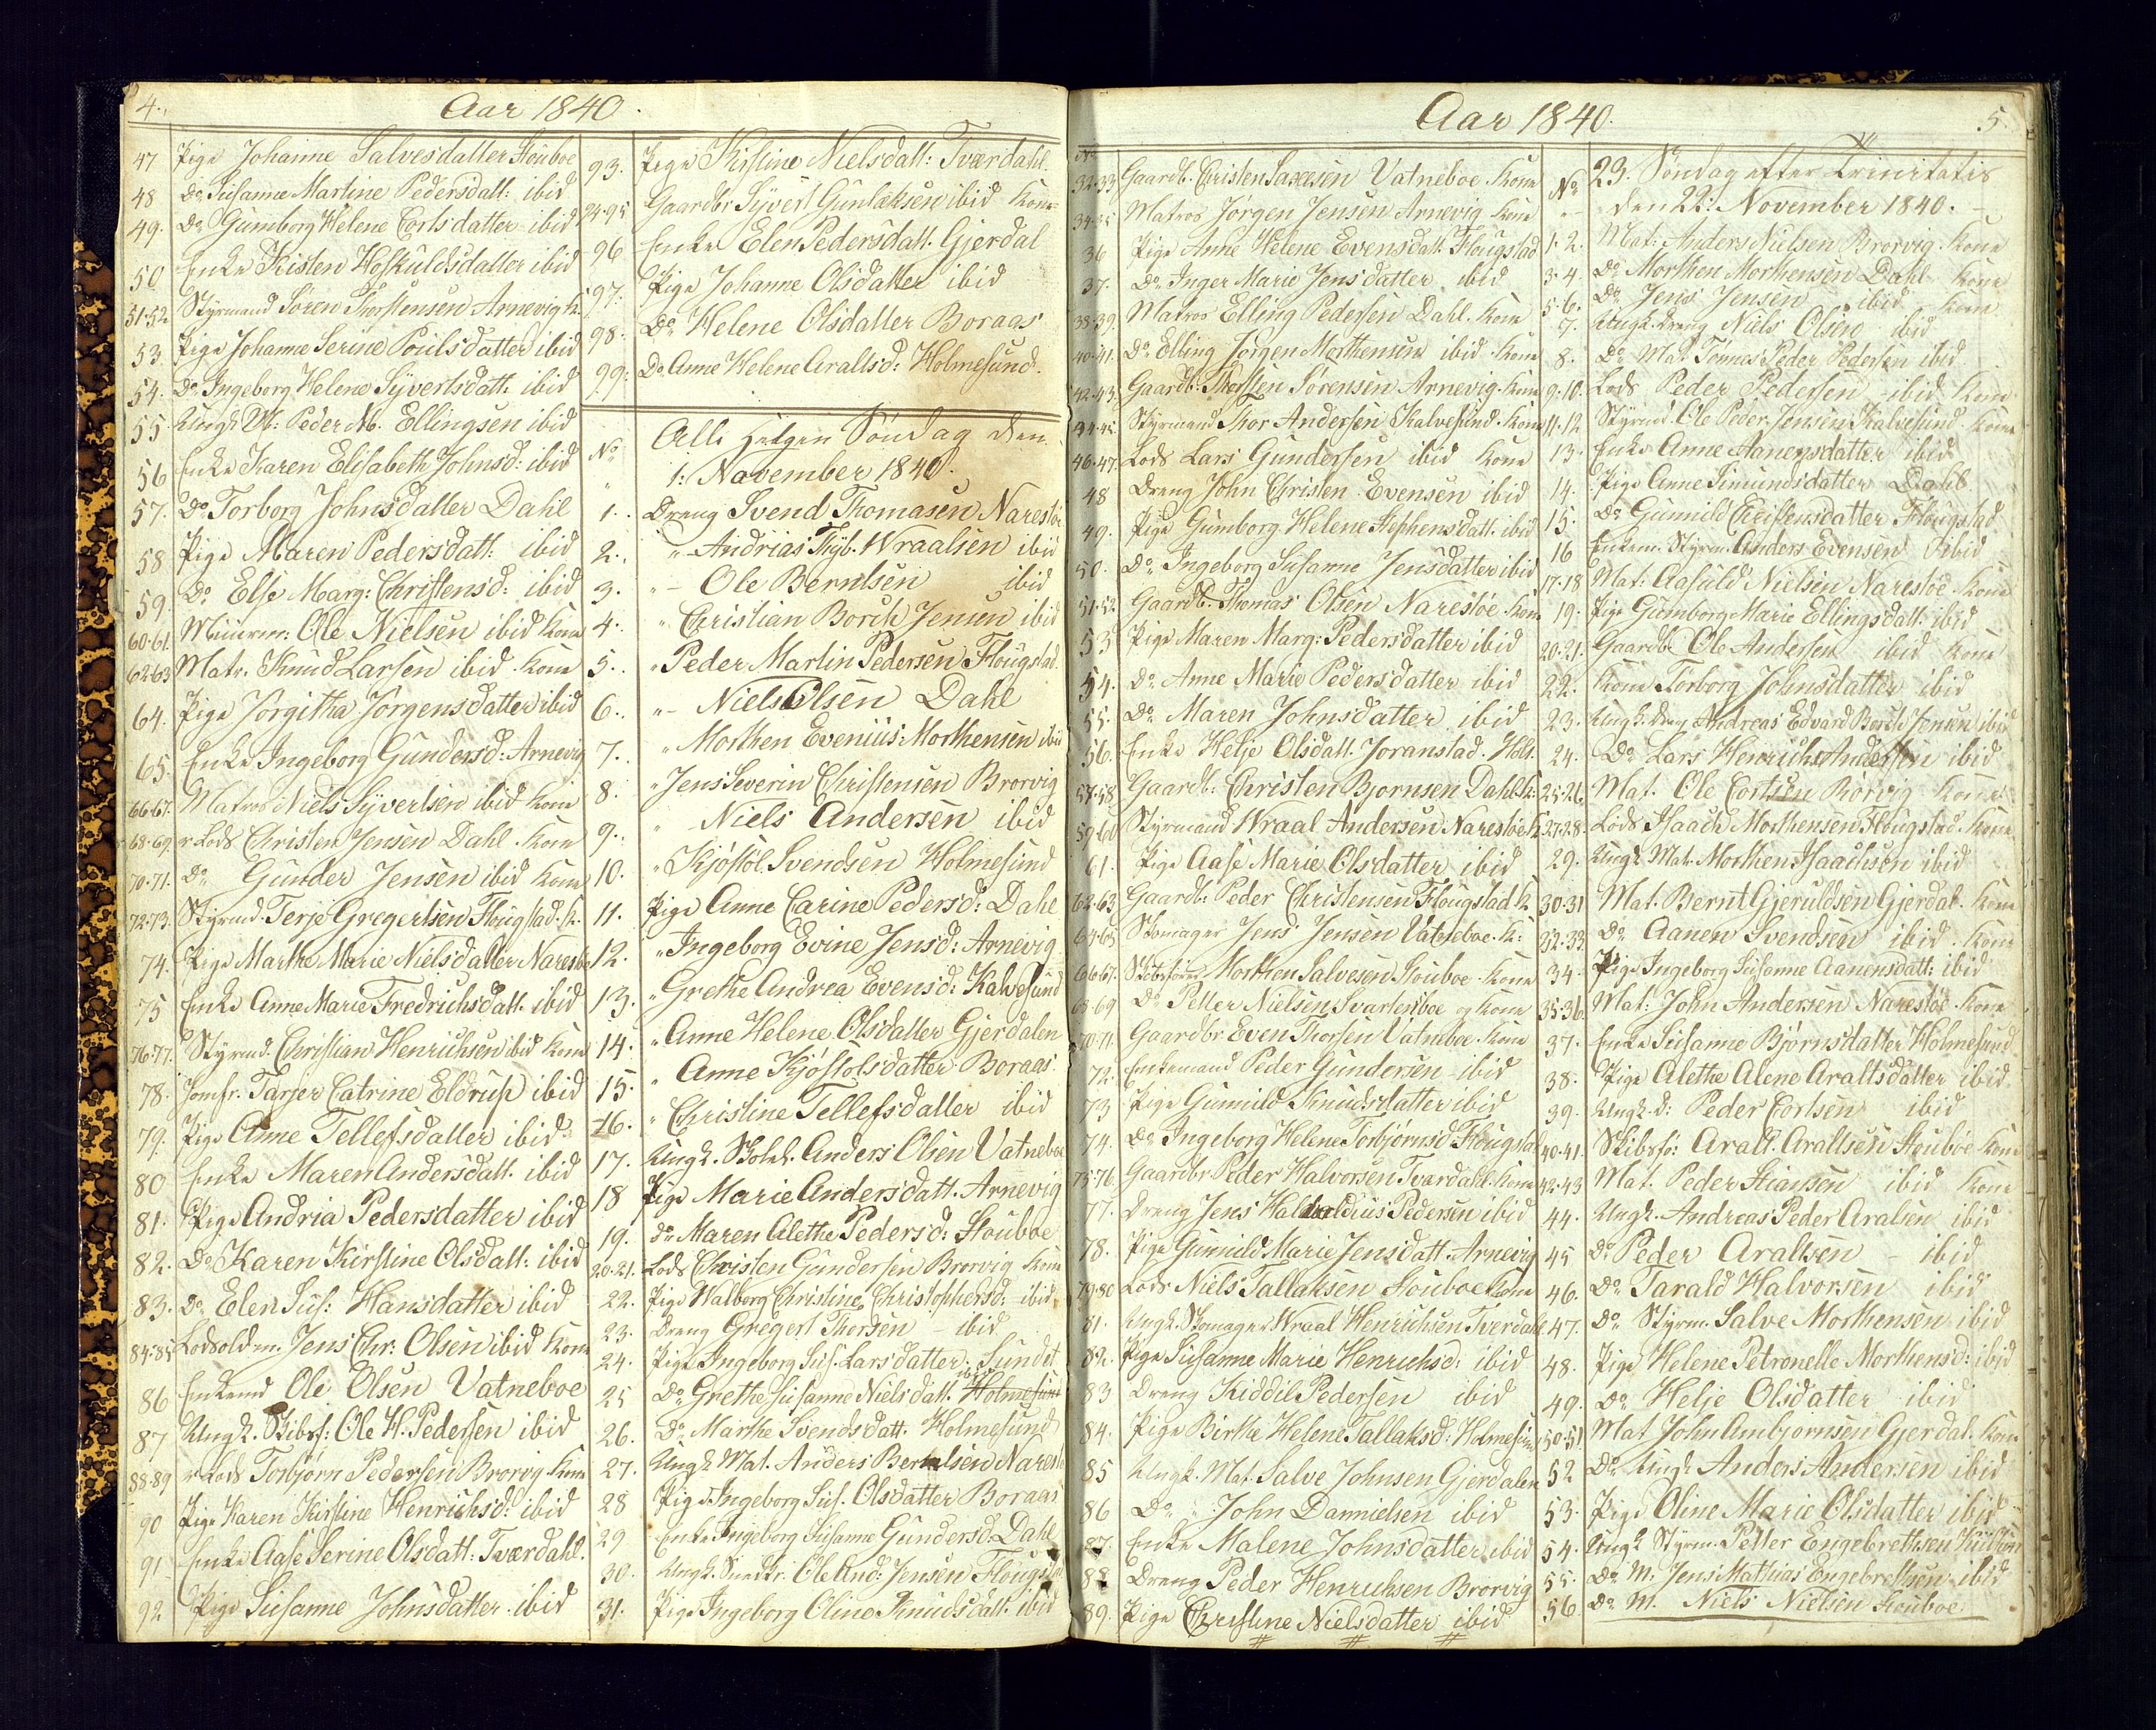 4.
Aar 1840.
47 Pige Johanne Salvesdatter Houboe
48 Do Susanne Martine Pedersdatt: ibid
49. Do Gumborg Helene Cortsdatter ibid
50 Enke Kisten Hoskuldsdatter ibid
51-52 Styrmand Sören Thorstensen Arnevig K.
53. Pige Johanne Serine Poulsdatter ibid
54. Do Ingeborg Helene Syvertsdatt. ibid
55. Ungk. M: Peder M. Ellingsen ibid
56 Enke Karen Elisabeth Johnsd: ibid
57. Do Torborg Johnsdatter Dahl
58 Pige Maren Pedersdatt: ibid
59. Do Else Marg: Christensd: ibid
60-61. Muurm: Ole Nielsen ibid Kone
62-63 Matr. Knud Larsen ibid Kone
64. Pige Jörgitha Jörgensdatter ibid
65. Enke Ingeborg Gundersd: Arnevig
66-67. Matros Niels Syvertsen ibid Kone
68-69. Lods Christen Jensen Dahl. Kone
70-71. Do Gunder Jensen ibid Kone
72-73. Styrmd. Terje Gregertsen Flougstad. K.
74. Pige Marthe Marie Nielsdatter Narestøe
75 Enke Anne Marie Fredrichsdatt. ibid
76-77. Styrmd. Christian Henrichsen ibid Kone
78. Jomfr. Tarjer Catrine Eldrup ibid
79. Pige Anne Tellefsdatter ibid
80 Enke Maren Andersdatt. ibid
81. Pige Andria Pedersdatter ibid
82. Do Karen Kirstine Olsdatt: ibid
83. Do Elen Sus: Hansdatter ibid
84-85 Lodsoldm. Jens Chr: Olsen ibid Kone
86 Enkemd Ole Olsen Vatneboe
87 Ungk. Skibsf: Ole H. Pedersen ibid
88-89 Lods Torbjørn Pedersen Brorvig Kone
90 Pige Karen Kirstine Henrichsd: ibid
91 Enke Aase Serine Olsdatt: Tværdahl.
92 Pige Susanne Johnsdatter ibid
93. Pige Kistine Nielsdatt: Tværdahl.
94-95 Gaardbr Syvert Gunlæksen ibid Kone
96 Enke Elen Pedersdatt. Gjerdal
97. Pige Johanne Olsdatter ibid
98. Do Helene Olsdatter Boraas
99. Do Anne Helene Araltsd: Holmesund.
No Alle Helgen Søndag den
" 1: November 1840.
1. Dreng Svend Thomasen Narestøe
2. " Andrias Thyb. Wraalsen ibid
3. " Ole Berntsen ibid
4. " Christian Borch Jensen ibid
5. " Peder Martin Pedersen Flougstad
6. " Niels Olsen Dahl
7. " Morthen Evenius Morthensen ibid
8. " Jens Severin Christensen Brorvig
9. " Niels Andersen ibid
10. " Kjøstol Svendsen Holmesund
11. Pige Anne Carine Pedersd: Dahl
12. " Ingeborg Evine Jensd: Arnevig
13. " Grethe Andrea Evensd: Kalvesund
14. " Anne Helene Olsdatter Gjerdalen
15. " Anne Kjøstolsdatter Boraas
16. " Christine Tellefsdatter ibid
17. Ungk. Anders Olsen Vatneboe
18 Pige Marie Andersdatt. Arnevig
19. Do Maren Alethe Pedersd: Houboe
20-21. Lods Christen Gundersen Brorvig Kone
22. Pige Walborg Christine Christophersd: ibid
23. Dreng Gregert Thorsen - ibid
24. Pige Ingeborg Sus. Larsdatter: Sundet
25 Do Grethe Susanne Nielsdatt. Holmesund
26. Do Marthe Svendsdatt. Holmesund
27. Ungk Mat. Anders Berntsen Narestø
28 Pige Ingeborg Sus. Olsdatter Boraas
29 Enke Ingeborg Susanne Gundersd: Dahl
30. Ungk. Snedkr. Ole And: Jensen Flougstad
31. Pige Ingeborg Oline Knudsdatt. ibid
Aar 1840.
5.
No
32-33 Gaardb. Christen Saxesen Vatneboe. Kone
34-35 Matros Jørgen Jensen Arnevig Kone
36 Pige Anne Helene Evensdatt. Flougstad
37. Do Inger Marie Jensdatter ibid
38-39. Matros Elling Pedersen Dahl. Kone
40-41. Do Elling Jørgen Morthensen ibid Kone
42-43 Gaardb: Thorsten Sørensen Arnevig. Kone
44-45 Styrmand Thor Andersen Kalvesund. Kone
46-47. Lods Lars Gundersen ibid Kone
48 Dreng John Christen Evensen ibid
49. Pige Gumborg Helene Stephensdatt. ibid
50. Do Ingeborg Susanne Jensdatter ibid
51-52. Gaardb. Thomas Olsen Narestøe. Kone
53 Pige Maren Marg: Pedersdatter ibid
54. Do Anne Marie Pedersdatter ibid
55. Do Maren Johnsdatter ibid
56. Enke Helje Olsdatt. Joranstad. Holt.
57-58 Gaardb: Christen Bjornsen Dahl. K:
59-60 Styrmand Wraal Andersen Narestøe K.
61. Pige Aase Marie Olsdatter ibid
62-63 Gaardb: Peder Christensen Flougstad K.
64-65 Skomager Jens Jensen Vatneboe. K:
66-67. Skibsfører Morthen Salvesen Houboe. Kone
68-69 Do Petter Nielsen Svartesboe og Kone
70-71. Gaardbr Even Thorsen Vatneboe. Kone
72. Enkemand Peder Gundersen ibid
73 Pige Gunnild Knudsdatter ibid
74. Do Ingeborg Helene Torbjørnsd Flougstad
75-76 Gaardbr Peder Halvorsen Tværdahl. Kone
77. Dreng Jens Pedersen ibid
78. Pige Gunnild Marie Jensdatt. Arnevig
79-80 Lods Niels Tallaksen Houboe Kone
81. Ungk. Skomager Wraal Henrichsen Tverdahl
82. Pige Susanne Marie Henrichsd: ibid
83 Dreng Kiddil Pedersen ibid
84. Pige Birthe Helene Tallaksd: Holmesund
85 Ungk. Mat. Salve Johnsen Gjerdalen
86 Do " John Dannielsen ibid
87. Enke Malene Johnsdatter ibid
88 Dreng Peder Henrichsen Brorvig
89. Pige Christine Nielsdatter ibid
No 23. Søndag efter Trinitatis
" den 22: November 1840.
1-2. Mat: Anders Nielsen Brorvig. Kone
3-4. Do Morthen Morthensen Dahl Kone
5-6. Do Jens Jensen ibid Kone
7. Ungk. Dreng Niels Olsen ibid
8. Do Mat. Tønnes Peder Pedersen ibid
9-10. Lods Peder Pedersen ibid Kone
11-12 Styrmd. Ole Peder Jensen Kalvesund. Kone
13. Enke Anne Aanensdatter ibid
14. Pige Anne Simundsdatter Dahl
15. Do Gunnild Christensdatter Flougstad
16 Enkem. Styrm. Anders Evensen ibid
17-18 Mat: Aasuld Nielsen Narestøe. Kone
19. Pige Gumborg Marie Ellingsdatt: ibid
20-21. Gaardb Ole Andersen ibid Kone
22. Kone Torborg Johnsdatter ibid
23. Ungk. Dreng Andreas Edvard Jensen ibid
24. Do Lars Henrich Andersen ibid
25-26. Mat. Ole Cortsen Rørvig Kone
27-28. Lods Isaach Morthensen Flougstad. Kone
29. Ungk Mat. Morthen Isaachsen ibid
30-31 Mat. Bernt Gjeruldsen Gjerdal. Kone
32-33 Do Aanen Svendsen ibid Kone
34. Pige Ingeborg Susanne Aanensdatt: ibid
35-36. Mat: John Andersen Narestøe. Kone
37. Enke Susanne Bjørnsdatter Holmesund
38. Pige Alethe Alene Araltsdatter ibid
39. Ungk. d: Peder Cortsen ibid
40-41. Skibsfø: Aralt Araltsen Houboe Kone
42-43 Mat. Peder Stiansen ibid Kone
44. Ungk. Andreas Peder Aralsen ibid
45 Do Peder Araltsen - ibid
46. Do Tarald Halvorsen ibid
47. Do Styrm. Salve Morthensen ibid
48. Pige Helene Petronelle Morthensd: ibid
49. Do Helje Olsdatter ibid
50-51 Mat John Ambjornsen Gjerdal. Kone
52 Do Ungk Anders Andersen ibid
53. Pige Oline Marie Olsdatter ibid
54. Ungk Styrm. Petter Engebrethsen
55. Do M. Jens Mathias Engebrethsen ibid
56. Do M. Niels Nielsen Houboe.